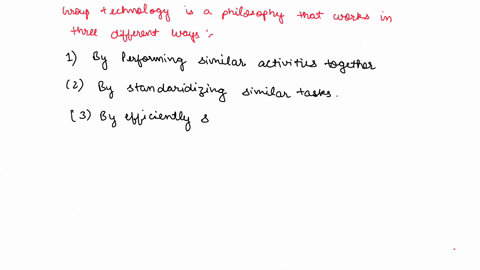 Group technology is a philosophy that works in
three different ways :-
1) By Performing similar activities together
(2) By standaridizing similar tasks.
(3) By efficiently s